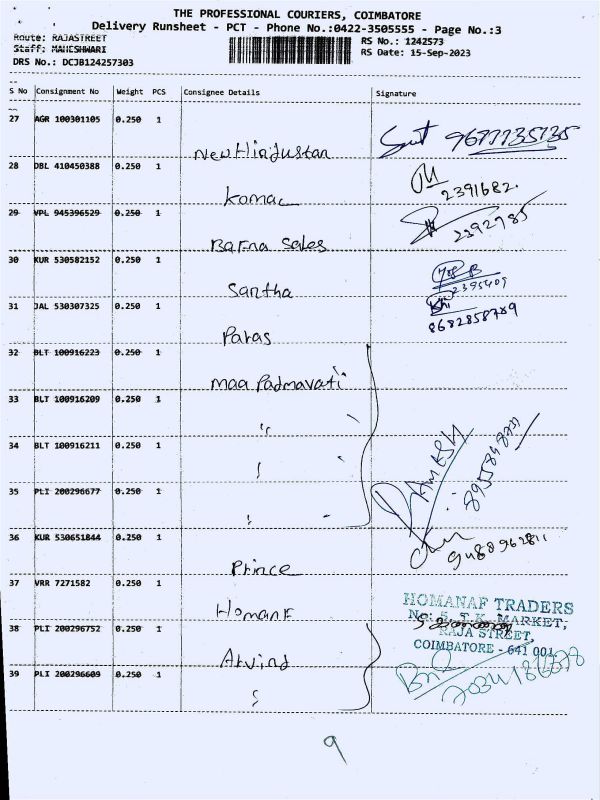 THE PROFESSIONAL COURIERS, COIMBATORE
Delivery Runsheet - PCT - Phone No.:0422-3505555 - Page No.:3
Route: RAJASTREET
RS No.: 1242573
Staff: MAHESHWARI
RS Date: 15-Sep-2023
DRS No.: DCJB124257303
S No Consignment No Weight PCS Consignee Details Signature
27 AGR 100301105 0.250 1
New Hindustan
28 DBL 410450388 0.250 1
Komal
2391682.
29 VPL 945396529 0.250 1
Barna Sales
2392785
30 KUR 530582152 0.250 1
Santha
2395409
31 JAL 530307325 0.250 1
Paras
8682858789
32 BLT 100916223 0.250 1
maa Padmavati
33 BLT 100916209 0.250 1
"
34 BLT 100916211 0.250 1
35 PLI 200296677 0.250 1
RAMESH
36 KUR 530651844 0.250 1
Prince
37 VRR 7271582 0.250 1
HomanF
HOMANAF TRADERS
No: 5, T.K. MARKET,
RAJA STREET,
COIMBATORE - 641 001.
38 PLI 200296752 0.250 1
Arvind
39 PLI 200296609 0.250 1
9